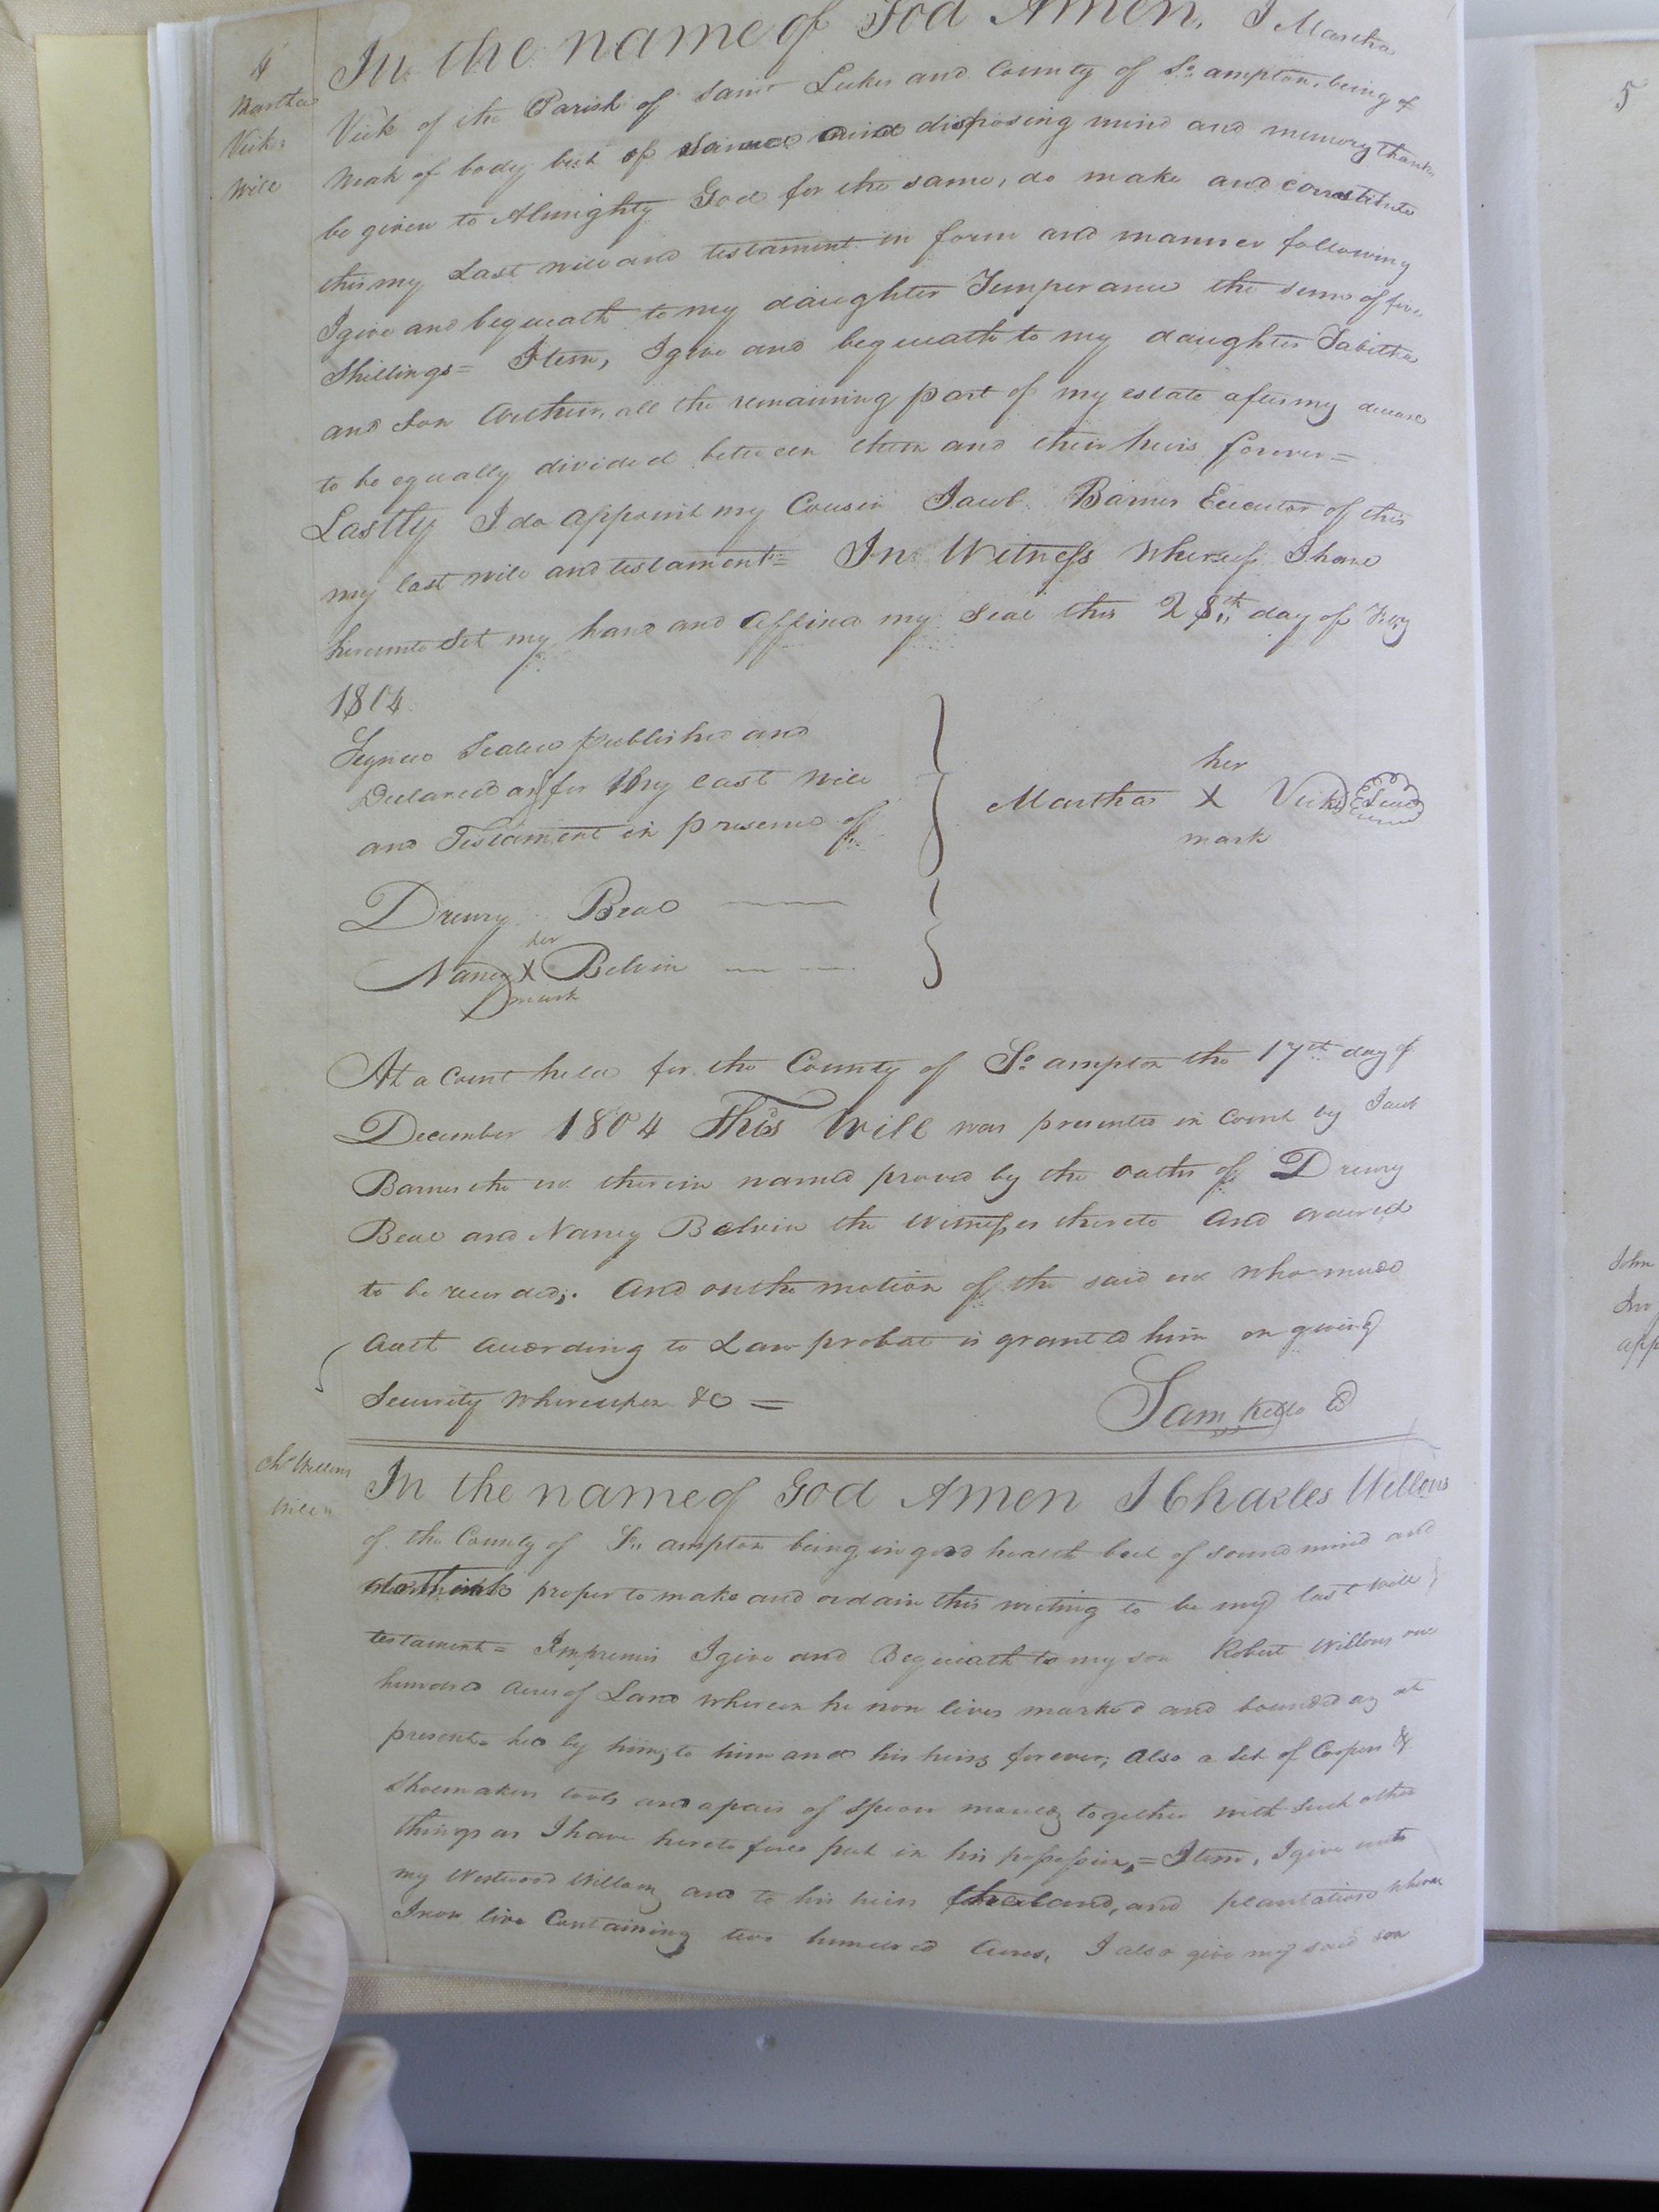 4
Martha
Vicks
Will
In the name of God Amen, I Martha
Vick of the Parish of Saint Lukes and County of So. ampton, being of
Weak of body but of sound mind disposing mind and memory thanks
be given to Almighty God for the same, do make and constitute
this my Last will and testament in form and manner following
I give and bequeath to my daughter Temperance the sum of five
Shillings = Item, I give and bequeath to my daughter Tabitha
and Son Arthur, all the remaining part of my estate after my decease
to be equally divided between them and their heirs forever =
Lastly I do appoint my Cousin Jacob Barnes Executor of this
my last will and testament = In Witness Whereof I have
hereunto Set my hand and affixed my Seal this 28th day of
1804
Signed Sealed published and
Declared as & for my last Will
and Testament in presence of
her
Martha X Vick Seal
mark
Drewry Beal
her
Nancy X Belvin
mark
At a Court held for the County of So. ampton the 17th day of
December 1804 This Will was presented in Court by Jacob
Barnes the exr therein named proved by the oaths of Drewry
Beal and Nancy Belvin the Witnesses thereto and ordered
to be recorded; And on the motion of the said exr who made
oath according to Law probat is granted him on giving
Security whereupon &c =
Sam Kello
Chs Willons
Will
In the name of God Amen I Charles Willons
of the County of So. ampton being in good health but of sound mind and
think proper to make and ordain this writing to be my last Will
testament = Impremis I give and Bequeath to my son Robert Willons one
hundred acres of Land wherein he now lives marked and bounded as at
present by him, to him and his heirs forever; also a Set of Coopers &
Shoemakers tools and a pair of Spoon moulds together with Such other
things as I have heretofore put in his possession, = Item, I give unto
my Westwood Willons and to his heirs the land, and plantation whereon
I now live Containing two hundred acres, I also give my said son
5
John
app